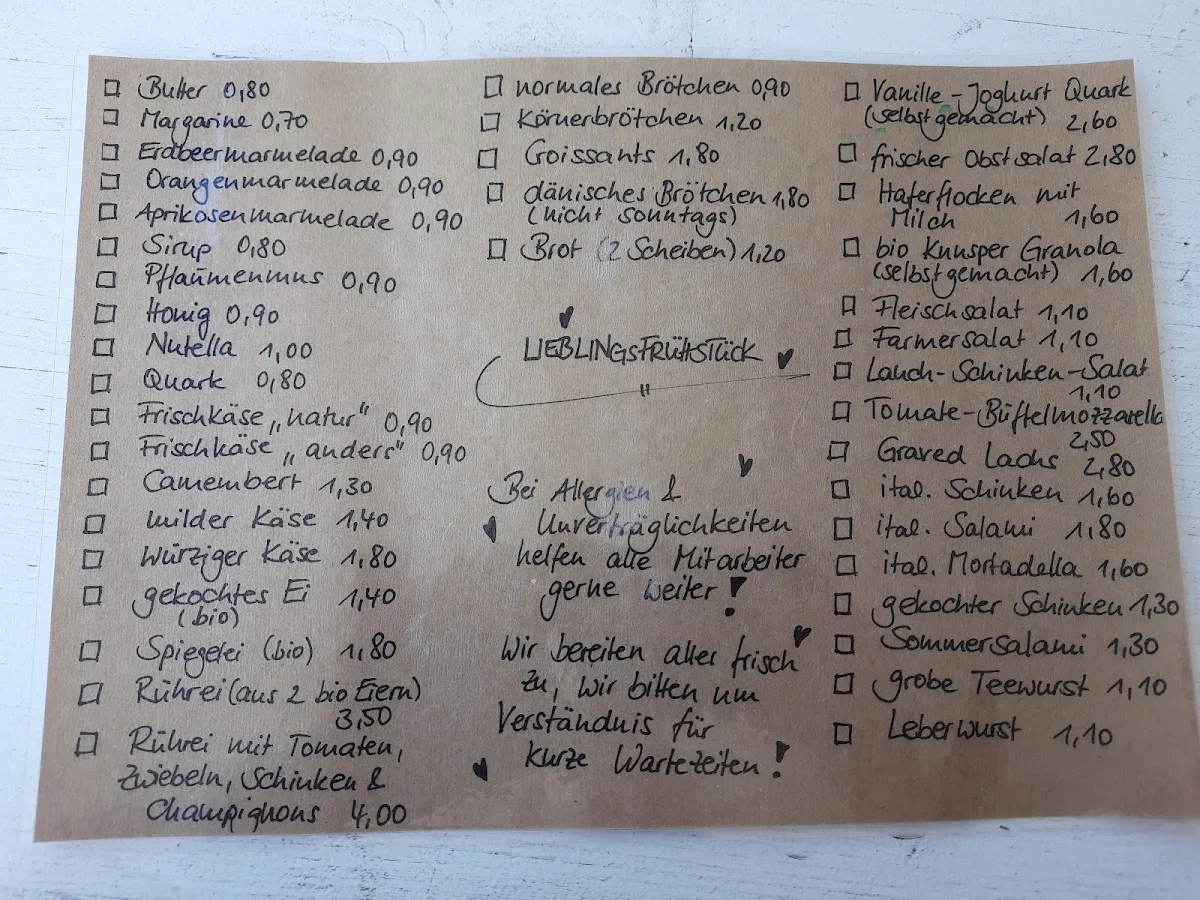 Butter 0,80
Margarine 0,70
Erdbeermarmelade 0,90
Orangenmarmelade 0,90
Aprikosenmarmelade 0,90
Sirup 0,80
Pflaumenmus 0,90
Honig 0,90
Nutella 1,00
Quark 0,80
Frischkäse „natur“ 0,90
Frischkäse „anders“ 0,90
Camembert 1,30
milder Käse 1,40
Würziger Käse 1,80
gekochtes Ei 1,40
(bio)
Spiegelei (bio) 1,80
Rührei (aus 2 bio Eiern)
3,50
Rührei mit Tomaten,
Zwiebeln, Schinken &
Champignons 4,00
normales Brötchen 0,90
Körnerbrötchen 1,20
Croissants 1,80
dänisches Brötchen 1,80
(nicht Sonntags)
Brot (2 Scheiben) 1,20
LIEBLINGSFRÜHSTÜCK
Bei Allergien &
Unverträglichkeiten
helfen alle Mitarbeiter
gerne weiter!
Wir bereiten alles frisch
zu, wir bitten um
Verständnis für
kurze Wartezeiten!
Vanille-Joghurt Quark
(selbstgemacht) 2,60
frischer Obstsalat 2,80
Haferflocken mit
Milch 1,60
bio Knusper Granola
(selbstgemacht) 1,60
Fleischsalat 1,10
Farmersalat 1,10
Lauch-Schinken-Salat
1,10
Tomate-Büffelmozzarella
2,50
Graved Lachs 2,80
ital. Schinken 1,60
ital. Salami 1,80
ital. Mortadella 1,60
gekochter Schinken 1,30
Sommersalami 1,30
grobe Teewurst 1,10
Leberwurst 1,10